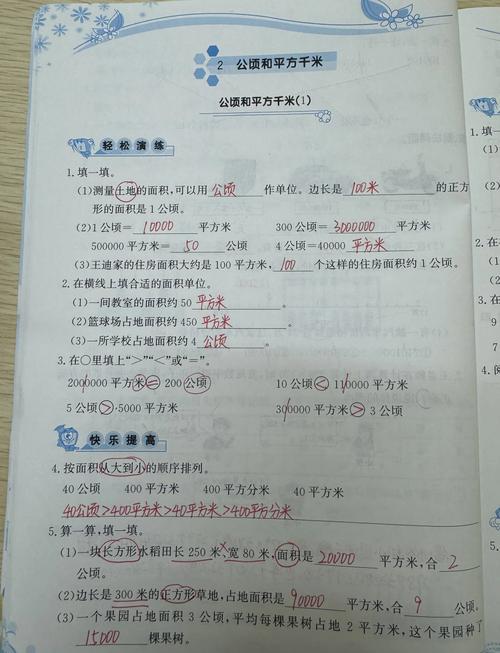 2 公顷和平方千米
公顷和平方千米(1)
轻松演练
1.填一填。
(1)测量土地的面积,可以用 公顷 作单位。边长是 100米 的正方
形的面积是1公顷。
(2)1公顷= 10000 平方米 300公顷= 3000000 平方米
500000平方米= 50 公顷 4公顷=40000 平方米
(3)王迪家的住房面积大约是100平方米, 100 个这样的住房面积约1公顷。
2.在横线上填合适的面积单位。
(1)一间教室的面积约50 平方米 。
(2)篮球场占地面积约450 平方米 。
(3)一所学校占地面积约4 公顷 。
3.在○里填上“>”“<”或“=”。
2000000平方米 = 200公顷 10公顷 < 110000平方米
5公顷 > 5000平方米 300000平方米 > 3公顷
快乐提高
4.按面积从大到小的顺序排列。
40公顷 400平方米 400平方分米 40平方米
40公顷>400平方米>40平方米>400平方分米
5.算一算,填一填。
(1)一块长方形水稻田长250米,宽80米,面积是 20000 平方米,合 2
公顷。
(2)边长是300米的正方形草地,占地面积是 90000 平方米,合 9 公顷。
(3)一个果园占地面积3公顷,平均每棵果树占地2平方米,这个果园种了
15000 棵果树。